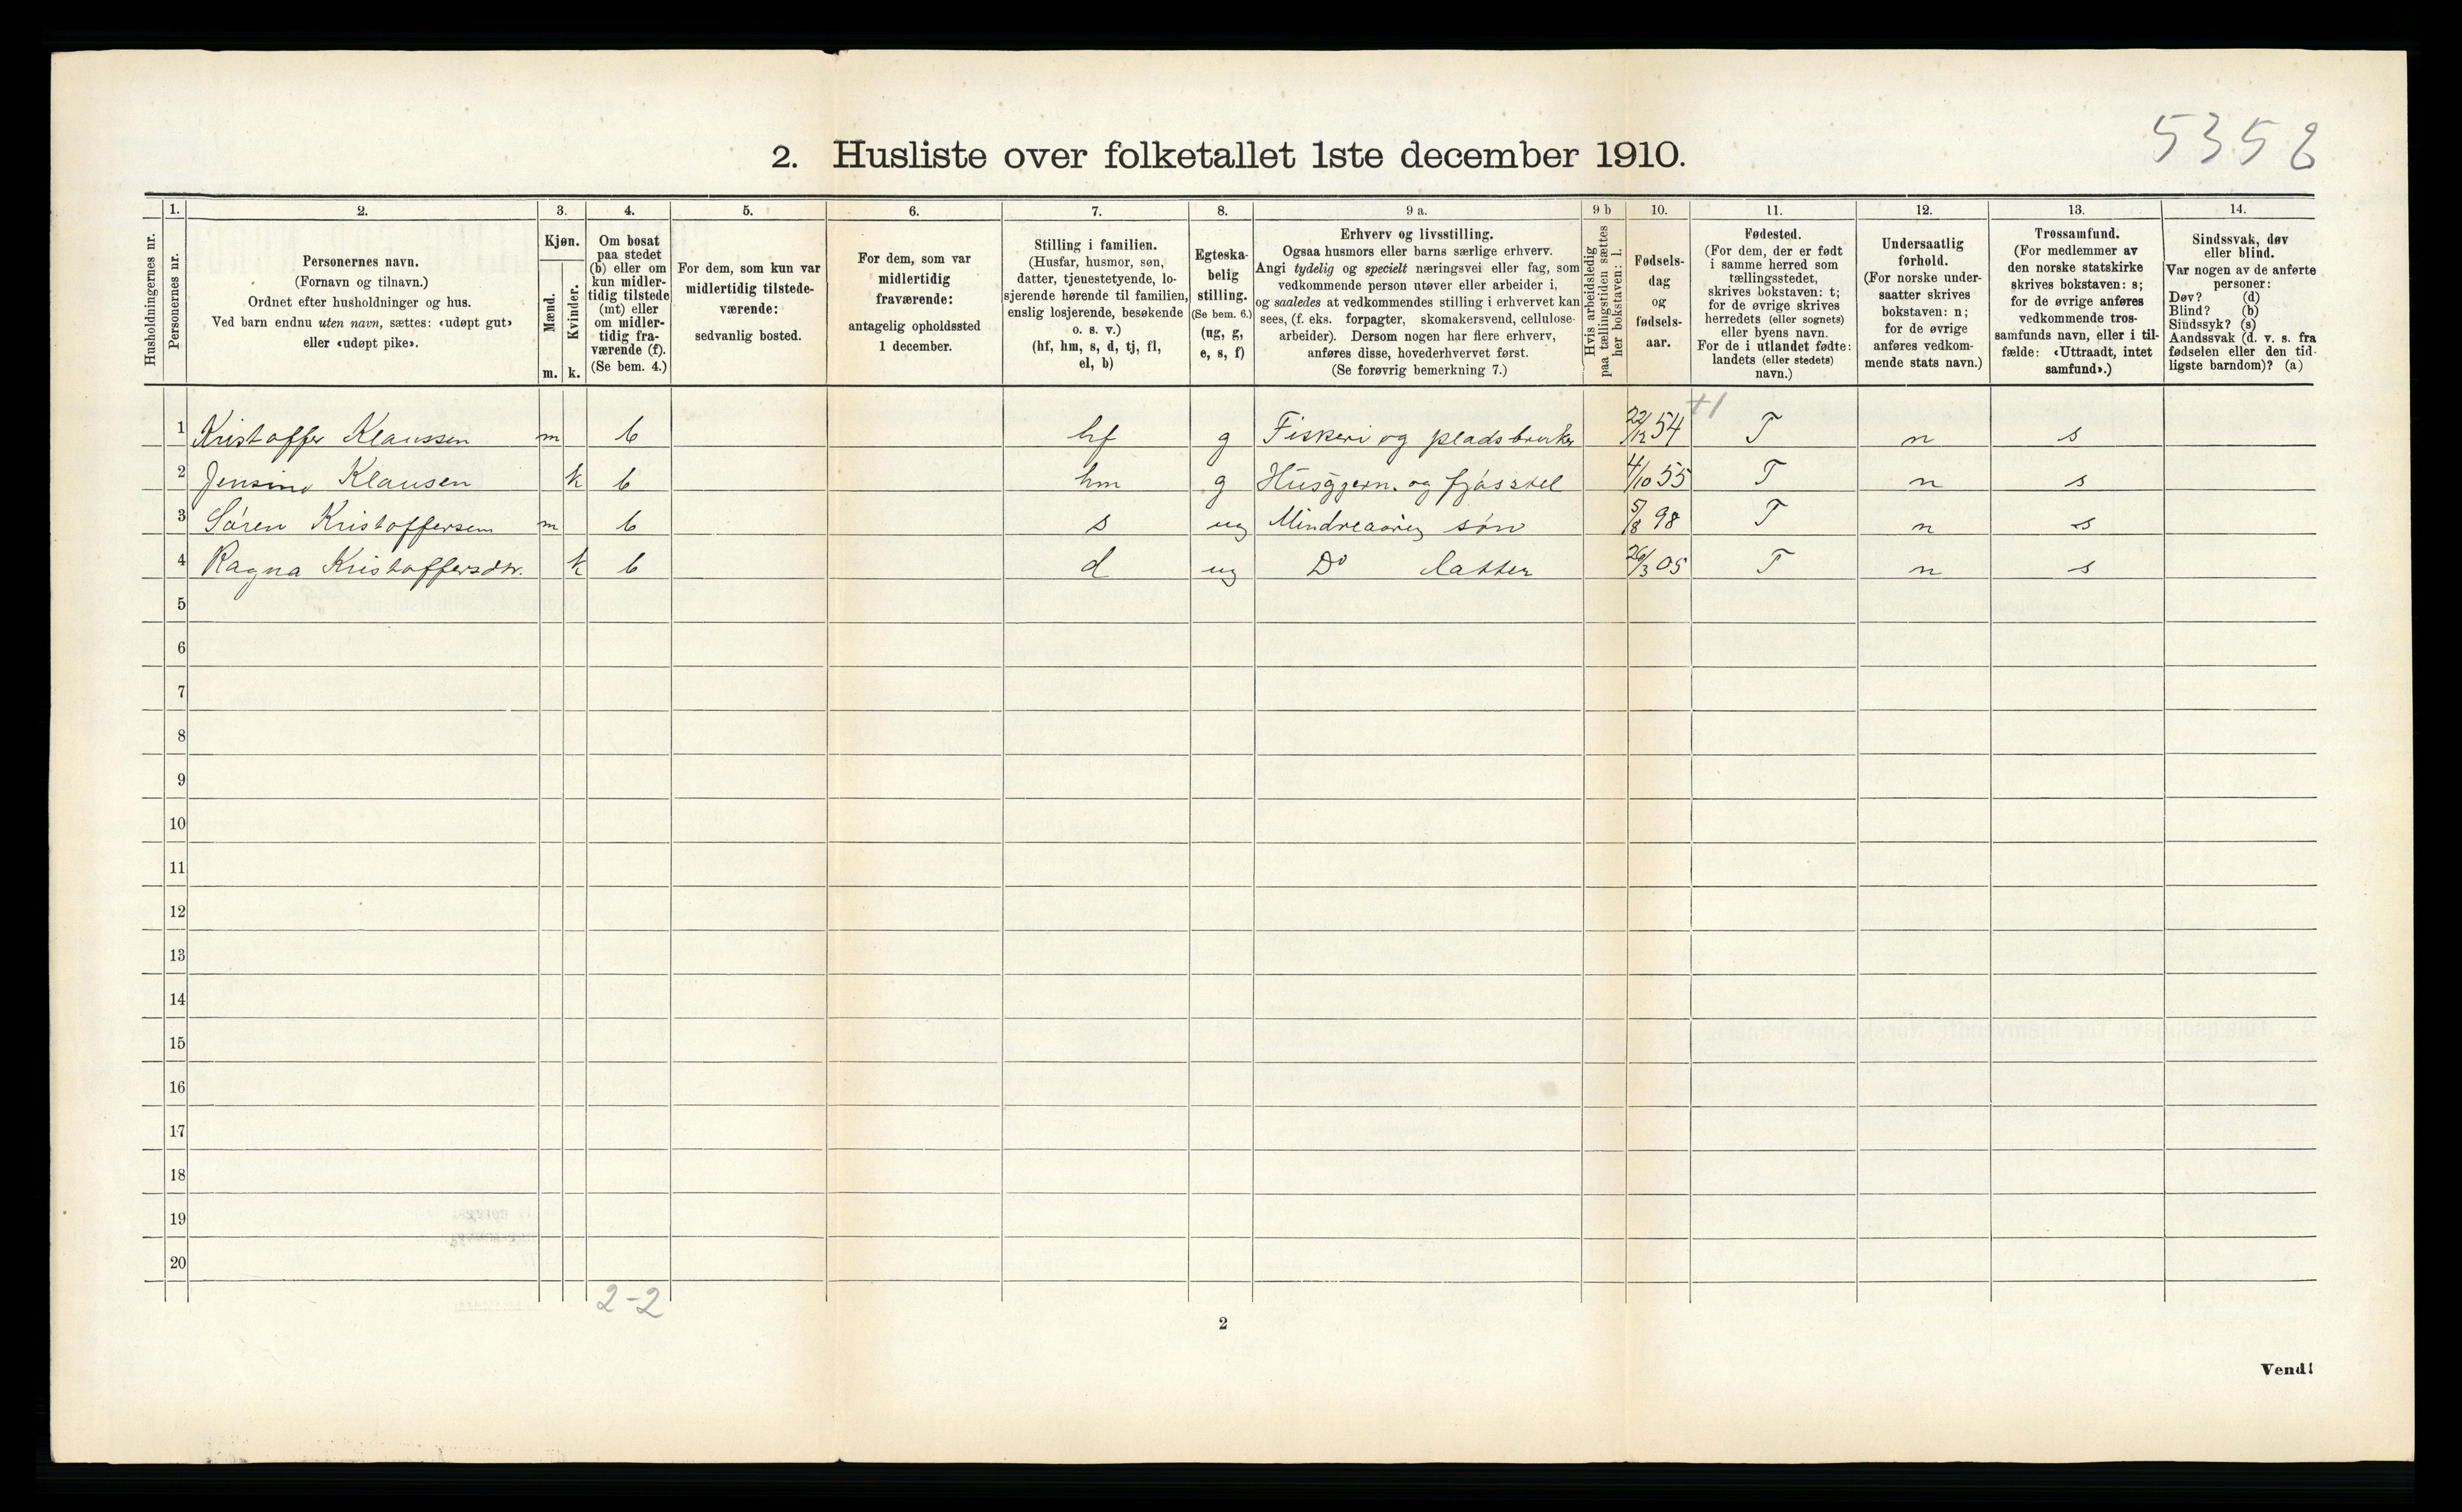 5358
2. Husliste over folketallet 1ste december 1910.
Husholdningernes nr.
1.
Personernes nr.
2.
Personernes navn.
(Fornavn og tilnavn.)
Ordnet efter husholdninger og hus.
Ved barn endnu uten navn, sættes: «udøpt gut»
eller «udøpt pike».
3.
Kjøn.
Mænd.
Kvinder.
m. k.
4.
Om bosat
paa stedet
(b) eller om
kun midler-
tidig tilstede
(mt) eller
om midler-
tidig fra-
værende (f).
(Se bem. 4.)
5.
For dem, som kun var
midlertidig tilstede-
værende:
sedvanlig bosted.
6.
For dem, som var
midlertidig
fraværende:
antagelig opholdssted
1 december.
7.
Stilling i familien.
(Husfar, husmor, søn,
datter, tjenestetyende, lo-
sjerende hørende til familien,
enslig losjerende, besøkende
o. s. v.)
(hf, hm, s, d, tj, fl,
el, b)
8.
Egteska-
belig
stilling.
(Se bem. 6.)
(ug, g,
e, s, f)
9 a.
Erhverv og livsstilling.
Ogsaa husmors eller barns særlige erhverv.
Angi tydelig og specielt næringsvei eller fag, som
vedkommende person utøver eller arbeider i,
og saaledes at vedkommendes stilling i erhvervet kan
sees, (f. eks. forpagter, skomakersvend, cellulose-
arbeider). Dersom nogen har flere erhverv,
anføres disse, hovederhvervet først.
(Se forøvrig bemerkning 7.)
9 b
Hvis arbeidsledig
paa tællingstiden sættes
her bokstaven: l.
10.
Fødsels-
dag
og
fødsels-
aar.
11.
Fødested.
(For dem, der er født
i samme herred som
tællingsstedet,
skrives bokstaven: t;
for de øvrige skrives
herredets (eller sognets)
eller byens navn.
For de i utlandet fødte:
landets (eller stedets)
navn.)
12.
Undersaatlig
forhold.
(For norske under-
saatter skrives
bokstaven: n;
for de øvrige
anføres vedkom-
mende stats navn.)
13.
Trossamfund.
(For medlemmer av
den norske statskirke
skrives bokstaven: s;
for de øvrige anføres
vedkommende tros-
samfunds navn, eller i til-
fælde: «Uttraadt, intet
samfund».)
14.
Sindssvak, døv
eller blind.
Var nogen av de anførte
personer:
Døv? (d)
Blind? (b)
Sindssyk? (s)
Aandssvak (d. v. s. fra
fødselen eller den tid-
ligste barndom)? (a)
1 Kristoffer Klaussen m b hf g Fiskeri og pladsbruker 22/12 54 T n s
2 Jensine Klausen k b hm g Husgjern. og fjøsstel 4/10 55 T n s
3 Søren Kristoffersen m b s ug Mindreaarig søn 5/8 98 T n s
4 Ragna Kristoffersdtr. k b d ug Do datter 26/3 05 T n s
5
6
7
8
9
10
11
12
13
14
15
16
17
18
19
20
2-2
2
Vend!